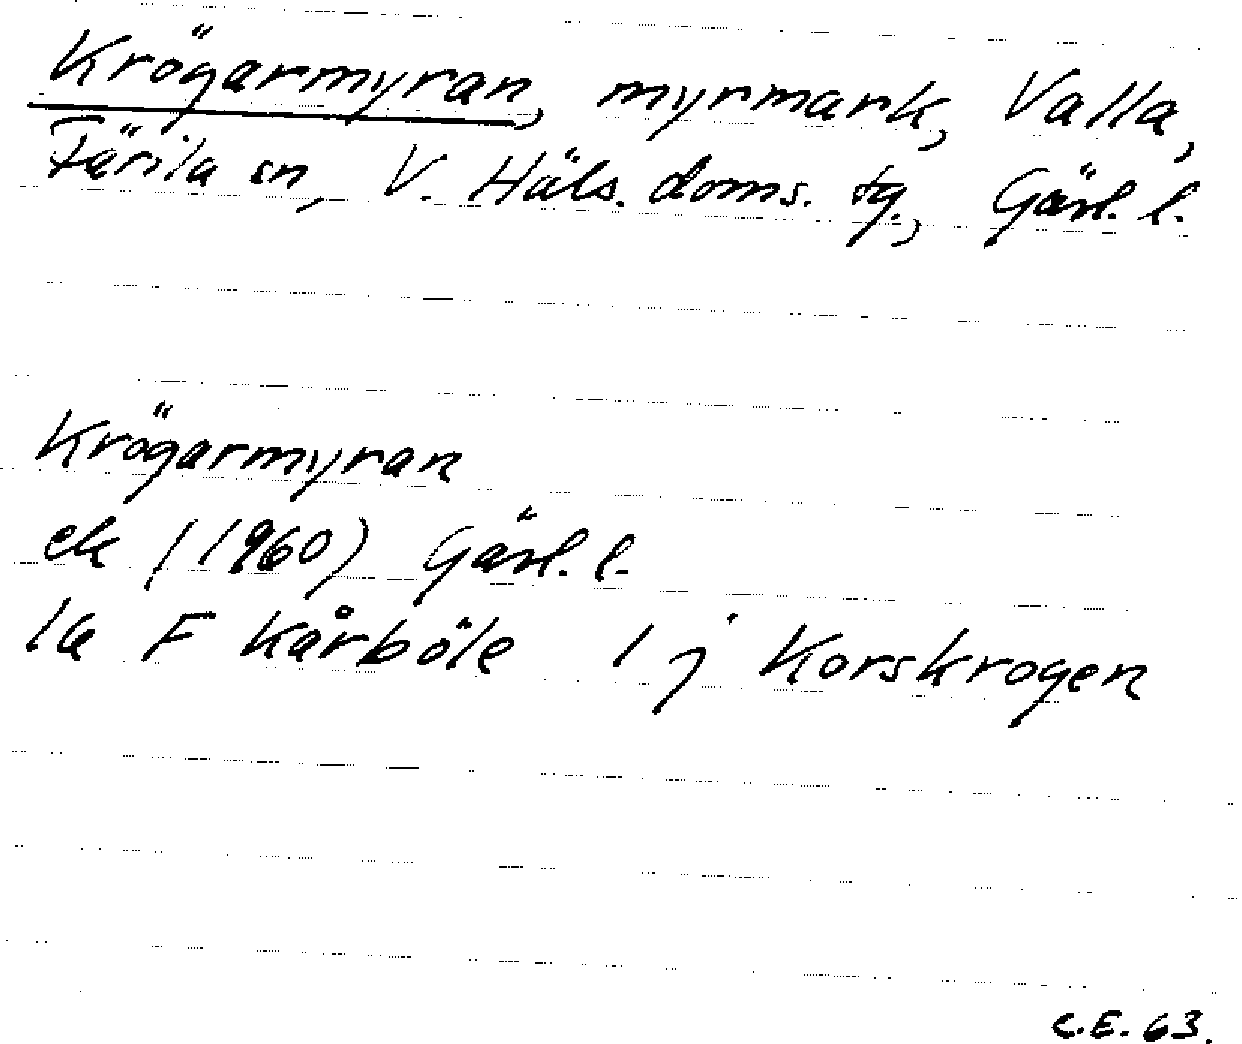 Krögarmyran, myrmark, Valla,
Färila sn, V. Häls. doms. tg., Gävl. l.
Krögarmyran
ek (1960) Gävl. l.
la F Kårböle 1 j Korskrogen
C.E. 63.